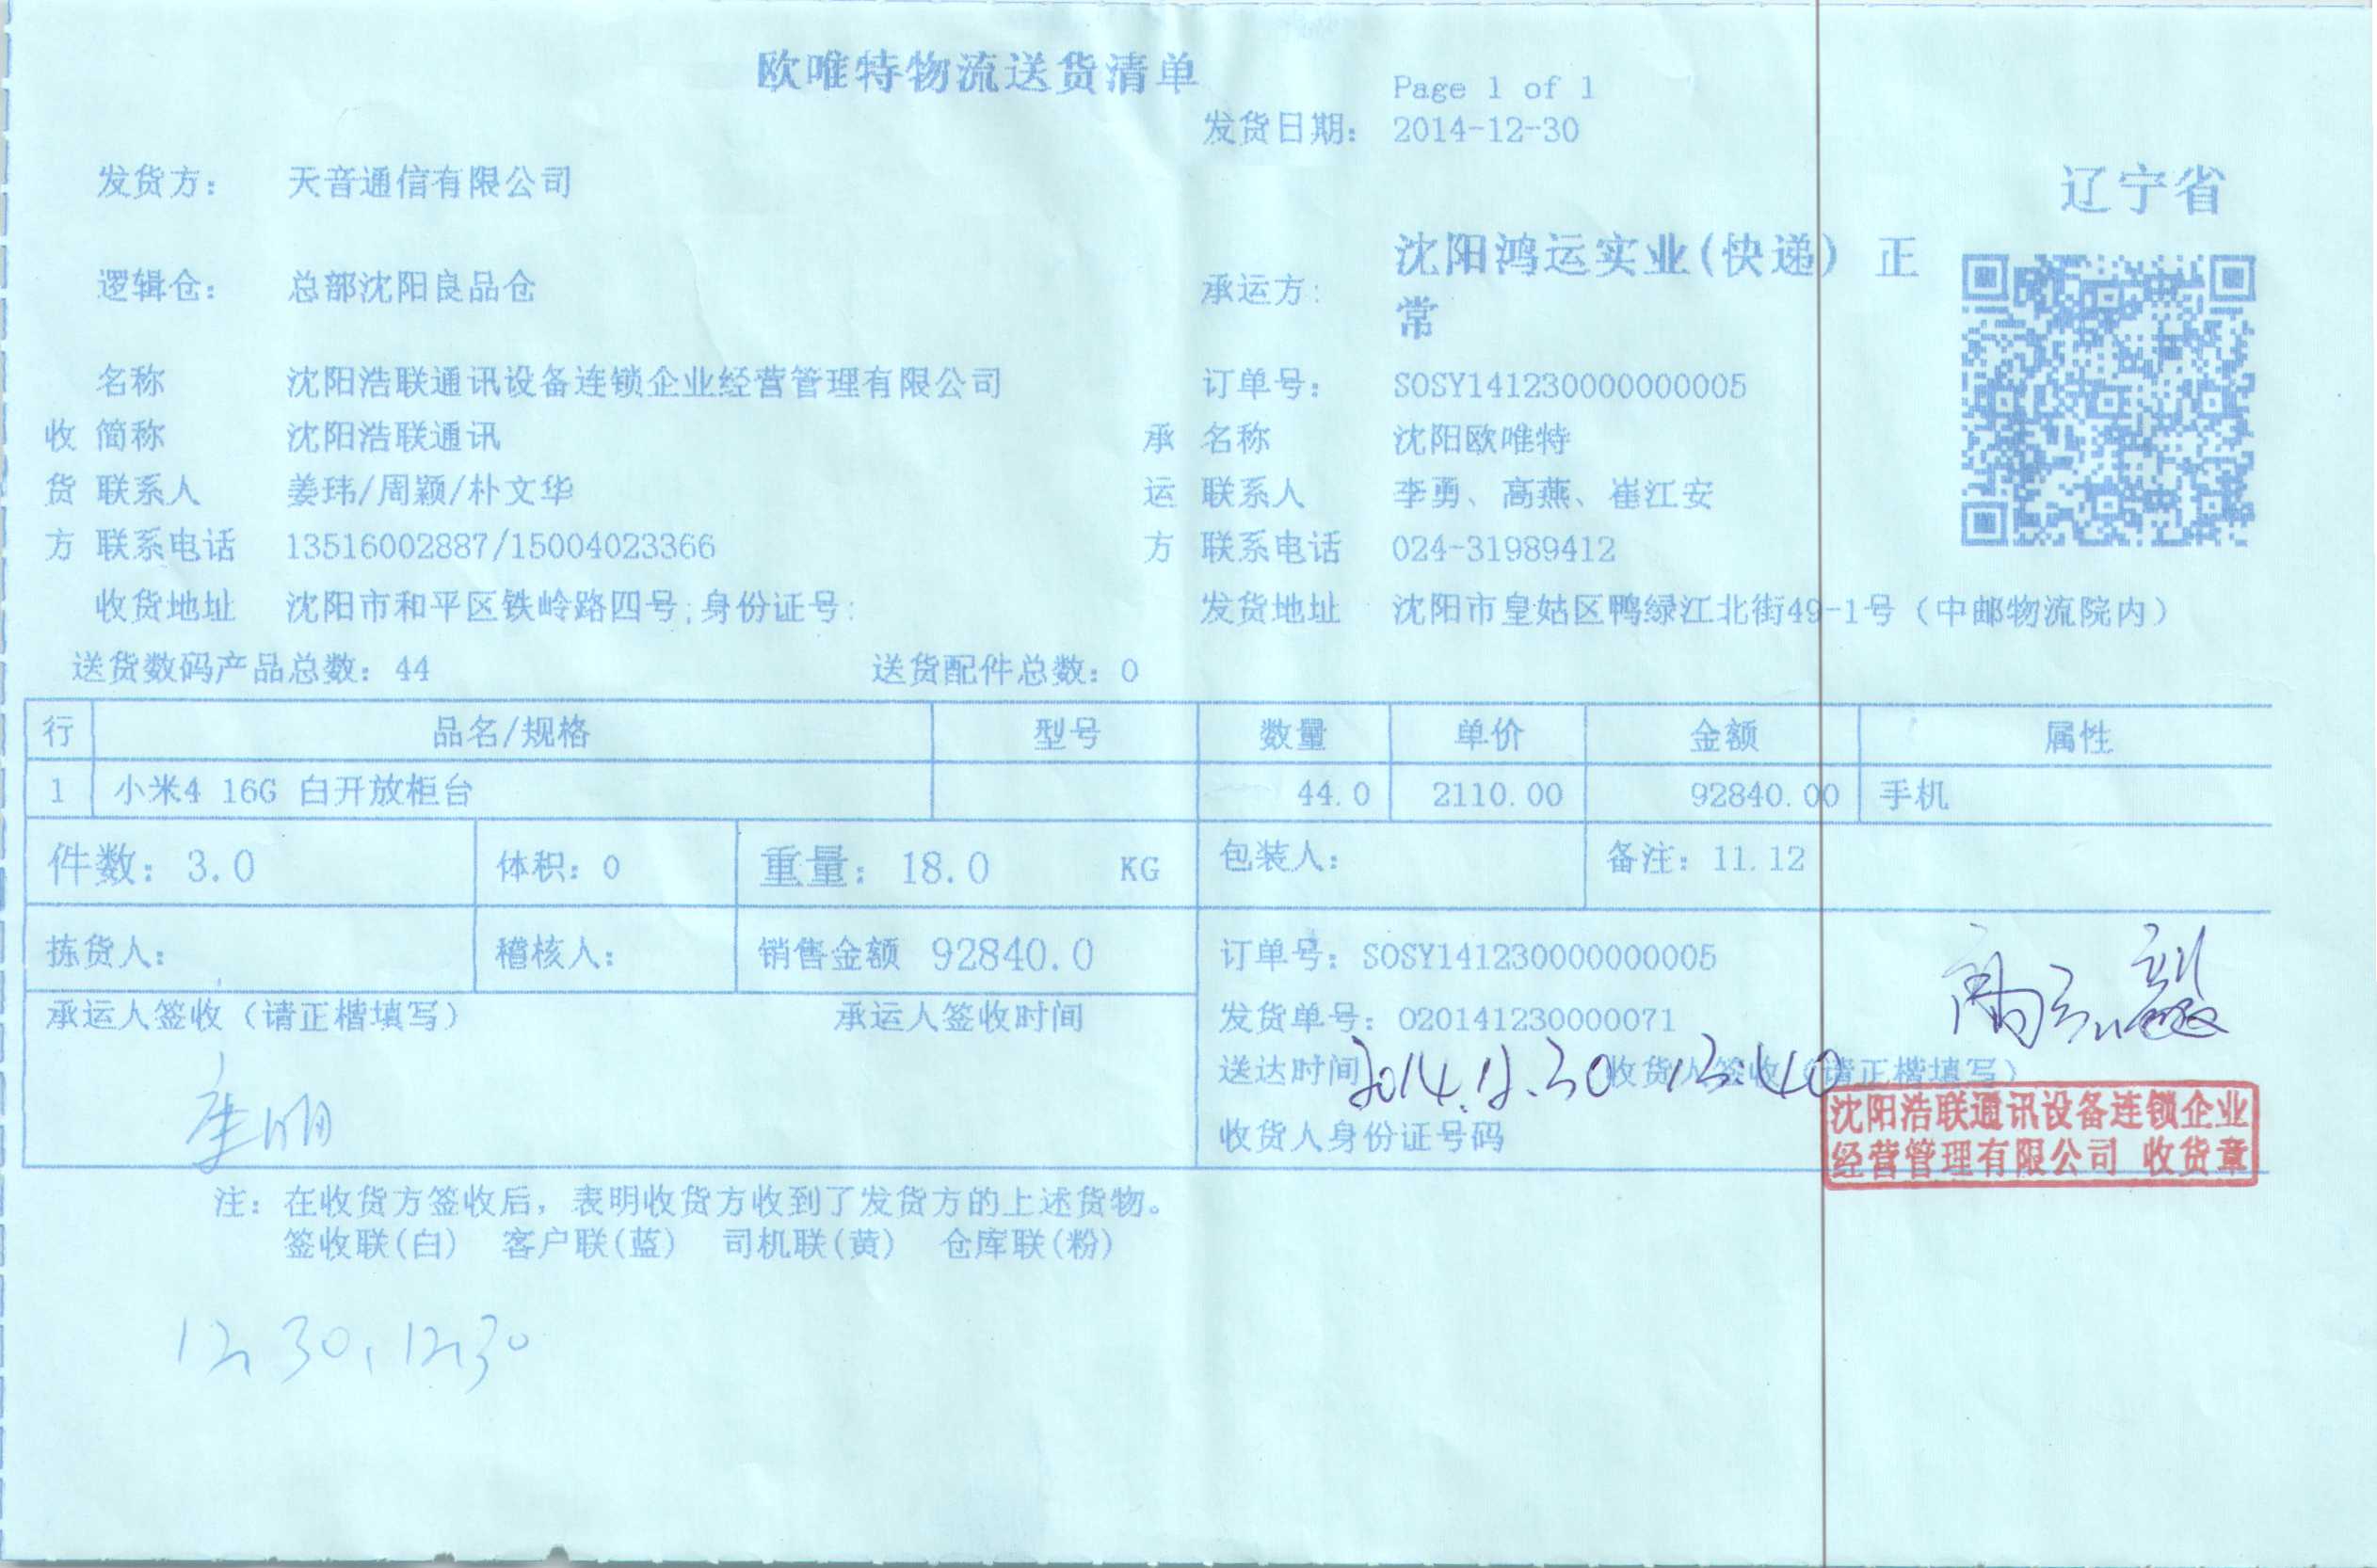 欧唯特物流送货清单
Page 1 of 1
发货日期： 2014-12-30
发货方： 天音通信有限公司
辽宁省
逻辑仓： 总部沈阳良品仓
承运方： 沈阳鸿运实业(快递) 正
常
名称 沈阳浩联通讯设备连锁企业经营管理有限公司 订单号： SOSY141230000000005
收 简称 沈阳浩联通讯 承 名称 沈阳欧唯特
货 联系人 姜玮/周颖/朴文华 运 联系人 李勇、高燕、崔江安
方 联系电话 13516002887/15004023366 方 联系电话 024-31989412
收货地址 沈阳市和平区铁岭路四号;身份证号: 发货地址 沈阳市皇姑区鸭绿江北街49-1号（中邮物流院内）
送货数码产品总数：44 送货配件总数：0
行 品名/规格 型号 数量 单价 金额 属性
1 小米4 16G 白开放柜台 44.0 2110.00 92840.00 手机
件数：3.0 体积：0 重量：18.0 KG 包装人： 备注：11.12
拣货人： 稽核人： 销售金额 92840.0 订单号：SOSY141230000000005
承运人签收（请正楷填写） 承运人签收时间 发货单号：020141230000071
送达时间 2014.12.30 13:40 收货人签收（请正楷填写）
收货人身份证号码
沈阳浩联通讯设备连锁企业
经营管理有限公司 收货章
注：在收货方签收后，表明收货方收到了发货方的上述货物。
签收联(白) 客户联(蓝) 司机联(黄) 仓库联(粉)
12.30, 12.30